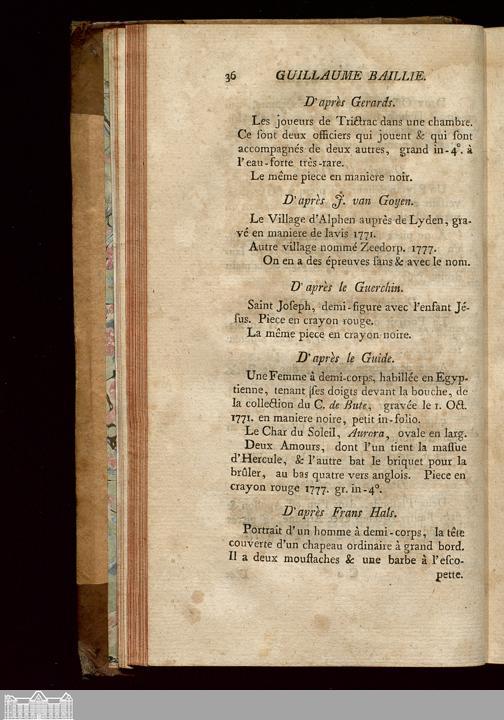 36 GUILLAUME BAILLIE.
D'après Gerards.
Les joueurs de Trictrac dans une chambre.
Ce ſont deux officiers qui jouent & qui ſont
accompagnés de deux autres, grand in-4°. à
l'eau-forte très-rare.
Le même piece en maniere noir.
D'après J. van Goyen.
Le Village d'Alphen auprès de Lyden, gra-
vé en maniere de lavis 1771.
Autre village nommé Zeedorp. 1777.
On en a des épreuves ſans & avec le nom.
D'après le Guerchin.
Saint Joſeph, demi-figure avec l'enfant Jé-
ſus. Piece en crayon rouge.
La même piece en crayon noire.
D'après le Guide.
Une Femme à demi-corps, habillée en Egyp-
tienne, tenant ſes doigts devant la bouche, de
la collection du C. de Bute, gravée le 1. Oct.
1771. en maniere noire, petit in-folio.
Le Char du Soleil, Aurora, ovale en larg.
Deux Amours, dont l'un tient la maſſue
d'Hercule, & l'autre bat le briquet pour la
brûler, au bas quatre vers anglois. Piece en
crayon rouge 1777. gr. in-4°.
D'après Frans Hals.
Portrait d'un homme à demi-corps, la tête
couverte d'un chapeau ordinaire à grand bord.
Il a deux mouſtaches & une barbe à l'eſco-
pette.